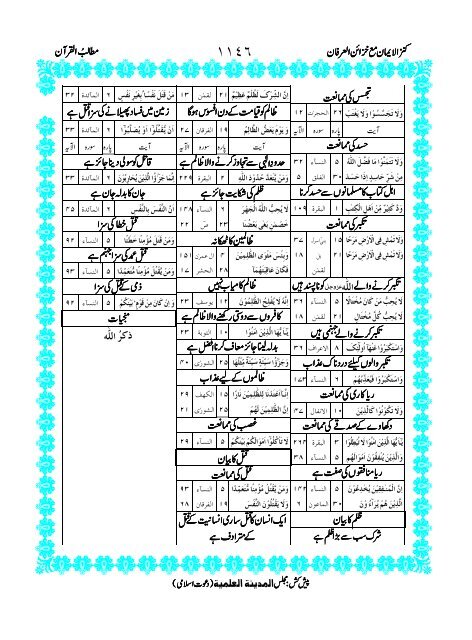 کنزالایمان مع خزائن العرفان ۱۱۴۶ مطالب القرآن
تجسس کی ممانعت
وَلَا تَجَسَّسُوْا وَلَا يَغْتَبْ ۲۶ الحجرات ۱۲
آیت پارہ سورہ آیۃ
حسد کی ممانعت
وَلَا تَتَمَنَّوْا مَا فَضَّلَ اللّٰهُ ۵ النساء ۳۲
مِنْ شَرِّ حَاسِدٍ اِذَا حَسَدَ ۳۰ الفلق ۵
اہل کتاب کا مسلمانوں سے حسد کرنا
وَدَّ كَثِيْرٌ مِّنْ اَهْلِ الْكِتٰبِ ۱ البقرة ۱۰۹
تکبر کی ممانعت
وَلَا تَمْشِ فِى الْاَرْضِ مَرَحًا ۱۵ ۳۷
وَلَا تَمْشِ فِى الْاَرْضِ مَرَحًا ۲۱ لقمٰن ۱۸
تکبر کرنے والے اللہ عزوجل کو ناپسند ہیں
مَنْ كَانَ مُخْتَالًا ۵ النساء ۳۶
لَا يُحِبُّ كُلَّ مُخْتَالٍ ۲۱ لقمٰن ۱۸
تکبر کرنے والے جہنمی ہیں
وَاسْتَكْبَرُوْا عَنْهَآ اُولٰٓئِكَ ۸ الاعراف ۳۶
تکبر والوں کیلئے دردناک عذاب
وَاسْتَكْبَرُوْا فَيُعَذِّبُهُمْ ۶ النساء ۱۷۳
ریاکاری کی ممانعت
وَلَا تَكُوْنُوْا كَالَّذِيْنَ ۱۰ الانفال ۴۷
دکھاوے کے صدقے کی ممانعت
يٰٓاَيُّهَا الَّذِيْنَ اٰمَنُوْا لَا تُبْطِلُوْا ۳ البقرة ۲۶۴
وَالَّذِيْنَ يُنْفِقُوْنَ اَمْوَالَهُمْ ۵ النساء ۳۸
ریا منافقوں کی صفت ہے
اِنَّ الْمُنٰفِقِيْنَ يُخٰدِعُوْنَ ۵ النساء ۱۴۲
الَّذِيْنَ هُمْ يُرَآءُوْنَ ۳۰ الماعون ۶
ظلم کا بیان
شرک سب سے بڑا ظلم ہے
اِنَّ الشِّرْكَ لَظُلْمٌ عَظِيْمٌ ۲۱ لقمٰن ۱۳
ظالم کو قیامت کے دن افسوس ہوگا
وَيَوْمَ يَعَضُّ الظَّالِمُ ۱۹ الفرقان ۲۷
آیت پارہ سورہ آیۃ
حدود الٰہی سے تجاوز کرنے والا ظالم ہے
وَمَنْ يَّتَعَدَّ حُدُوْدَ اللّٰهِ ۲ البقرة ۲۲۹
ظلم کی شکایت جائز ہے
لَا يُحِبُّ اللّٰهُ الْجَهْرَ ۶ النساء ۱۴۸
خَصْمٰنِ بَغٰى بَعْضُنَا ۲۳ ص ۲۲
ظالمین کا ٹھکانہ
وَبِئْسَ مَثْوَى الظّٰلِمِيْنَ ۴ اٰل عمرٰن ۱۵۱
فَكَانَ عَاقِبَتَهُمَآ ۲۸ الحشر ۱۷
ظالم کامیاب نہیں
اِنَّهٗ لَا يُفْلِحُ الظّٰلِمُوْنَ ۱۲ یوسف ۲۳
کافروں سے دوستی رکھنے والا ظالم ہے
يٰٓاَيُّهَا الَّذِيْنَ اٰمَنُوْا ۱۰ التوبة ۲۳
بدلہ لینا جائز معاف کرنا افضل ہے
وَجَزٰٓؤُا سَيِّئَةٍ سَيِّئَةٌ مِّثْلُهَا ۲۵ الشورٰی ۴۰
ظالموں کے لیے عذاب
اِنَّآ اَعْتَدْنَا لِلظّٰلِمِيْنَ نَارًا ۱۵ الكهف ۲۹
اِنَّ الظّٰلِمِيْنَ لَهُمْ ۲۵ الشورٰی ۲۱
غصب کی ممانعت
لَا تَاْكُلُوْٓا اَمْوَالَكُمْ بَيْنَكُمْ ۵ النساء ۲۹
قتل کا بیان
قتل کی ممانعت
وَمَنْ يَّقْتُلْ مُؤْمِنًا مُّتَعَمِّدًا ۵ النساء ۹۳
وَلَا يَقْتُلُوْنَ النَّفْسَ ۱۹ الفرقان ۶۸
ایک انسان کا قتل ساری انسانیت کے قتل
کے مترادف ہے
مَنْ قَتَلَ نَفْسًا بِغَيْرِ نَفْسٍ ۶ المائدة ۳۲
زمین میں فساد پھیلانے کی سزا قتل ہے
اَنْ يُّقَتَّلُوْٓا اَوْ يُصَلَّبُوْٓا ۶ المائدة ۳۳
آیت پارہ سورہ آیۃ
قاتل کو سولی دینا جائز ہے
اِنَّمَا جَزٰٓؤُا الَّذِيْنَ يُحَارِبُوْنَ ۶ المائدة ۳۳
جان کا بدلہ جان ہے
اَنَّ النَّفْسَ بِالنَّفْسِ ۶ المائدة ۴۵
قتل خطا کی سزا
وَمَنْ قَتَلَ مُؤْمِنًا خَطَـًٔا ۵ النساء ۹۲
قتل عمد کی سزا جہنم ہے
وَمَنْ يَّقْتُلْ مُؤْمِنًا مُّتَعَمِّدًا ۵ النساء ۹۳
ذمی کے قتل کی سزا
وَاِنْ كَانَ مِنْ قَوْمٍ بَيْنَكُمْ ۵ النساء ۹۲
منجیات
ذکرُ اللہ
پیش کش: مجلس المدینة العلمیة (دعوت اسلامی)